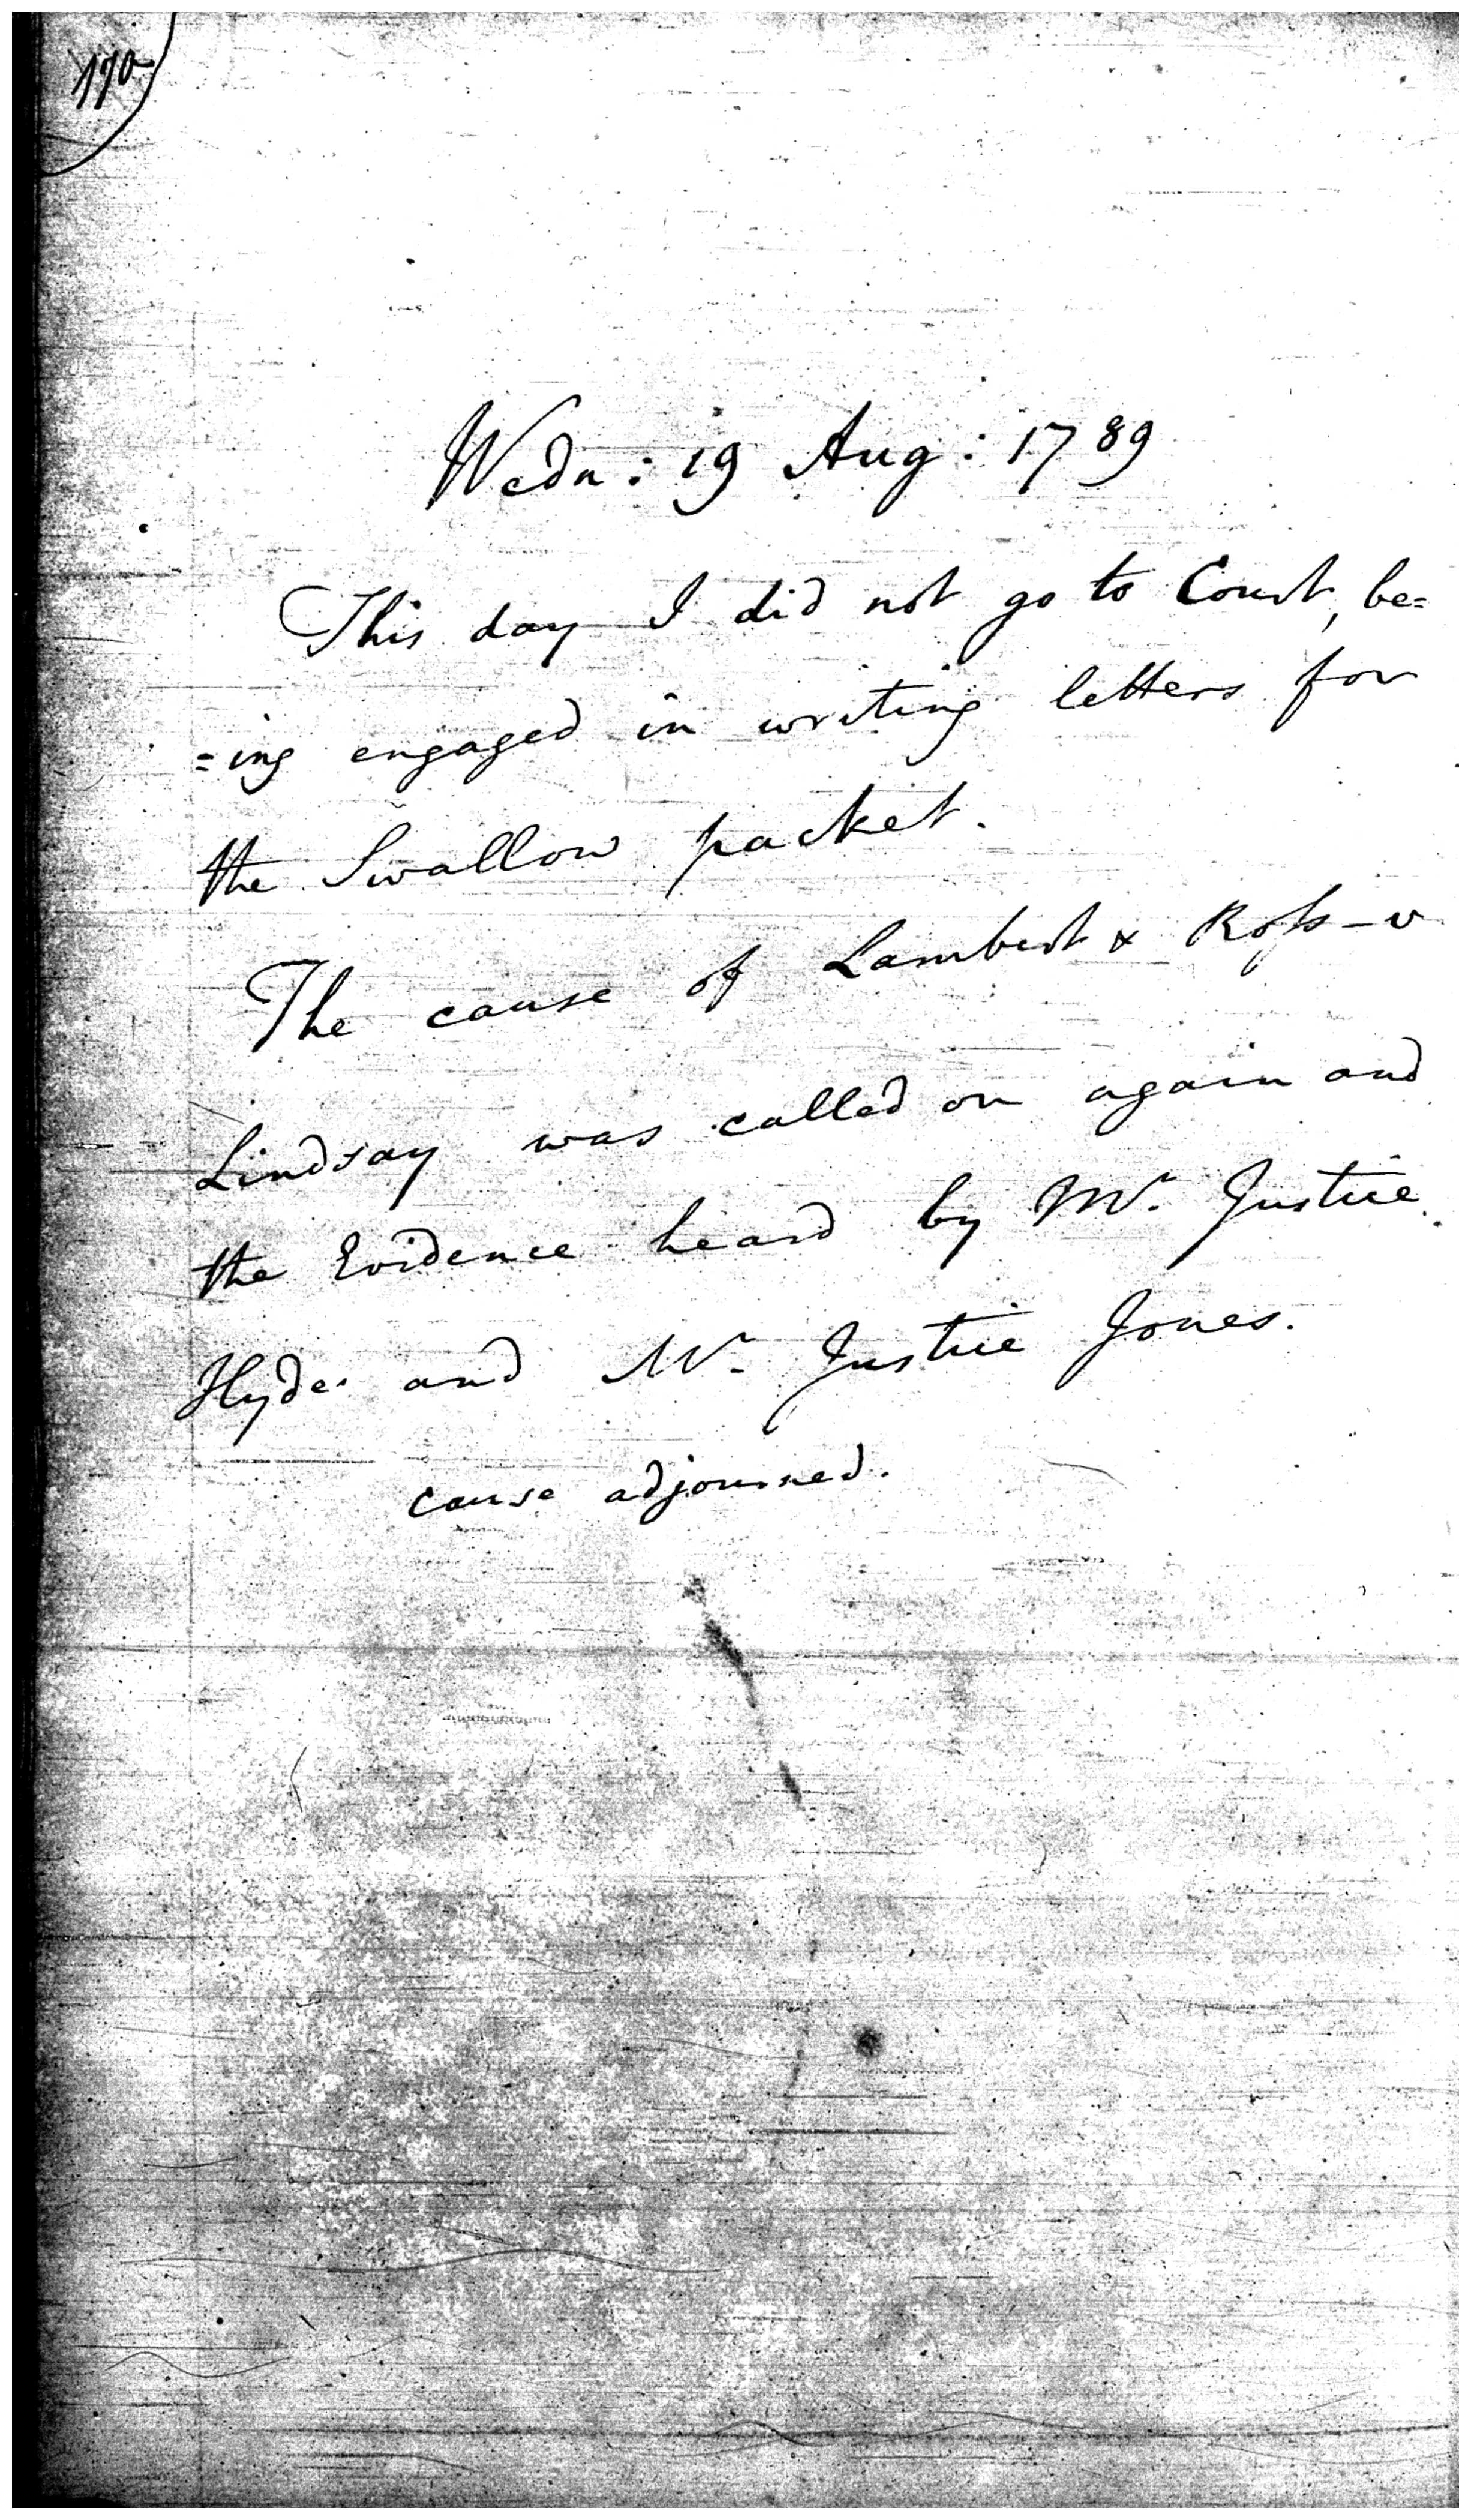 170
Wedn: 19 Aug: 1789
This day I did not go to Court, be=
=ing engaged in writing letters for
the Swallow packet.
The cause of Lambert & Ross - v
Lindsay was called on again and
the Evidence heard by Mr. Justice
Hyde and Mr. Justice Jones.
cause adjourned.